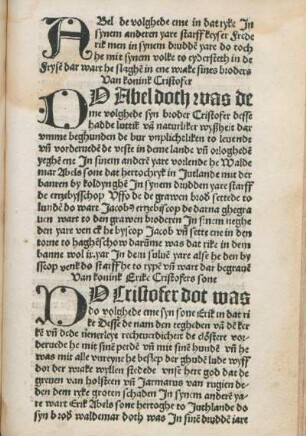 ABel de volghede eme in dat ryke In
synem anderen yare starff keyser Frede
rik men in synem drudde yare do toch
he mit synem volke to eyderstedh in de
Fryse dar wart he slaghe in ene wrake sines broders
Van konink Cristofer
DO Abel doch was de
me volghede syn broder Cristofer desse
hadde luttik vn naturliker wyßheit dar
vmme beghunden de bur vnplichtliken to leuende
vn vordernede de veste in deme lande vn orloghede
yeghe ene In sinem andere yare vorlende he Walde
mar Abels sone dat hertochryk in Jutlande mit der
banren by koldynghe In synem drudden yare starff
de ertzbysschop Vffo de de grawen brod settede to
lunde do wart Jacob ertzebiscop de darna ghegra
uen wart to den grawen broderen In sinem neghe
den yare venck he byscop Jacob vn sette ene in den
torne to hagheschow darume was dat rike in dem
banne wol yar In dem sulue yare alse he den by
scop venk do starff he to rype vn wart dar begraue
Van konink Erike Cristofers sone
DO Cristofer dot was
do volghede eme syn sone Erik in dat ri
ke Desse de nam den tegheden vn de ker
ke vn dede nenerleye rechtuerdicheit de clostere vor
deruede he mit sine perde vn mit sine hunde vn he
was mit alle vnreyne he beslep der ghude lude wyff
dor der wrake wyllen stedede vnse here god dat de
greuen van holsteen vn Jarmarus van rugien de
den dem ryke groten schaden In synem andere ya-
re wart Erik Abels sone hertoghe to Juthlande do
syn brod waldemar doth was In sine drudde iare